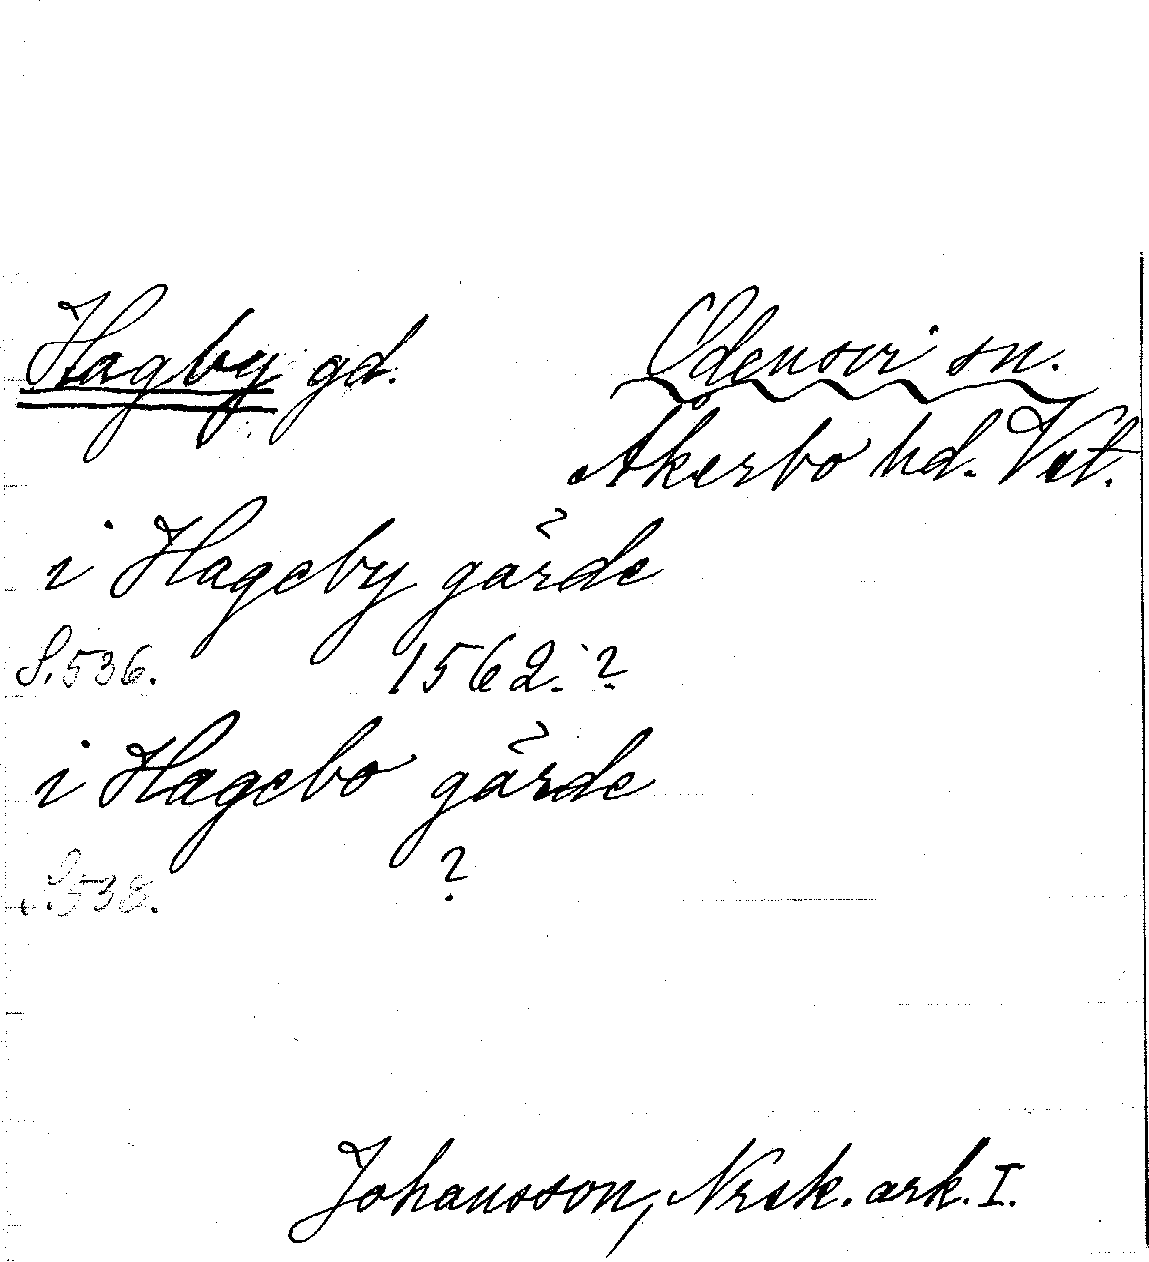 Hagby gd. Odensvi sn.
Åkerbo hd. Vst.
i Hageby gärde
S. 536. 1562. ?
i Hagebo gärde
S. 538. ?
Johansson, Nrsk. ark. I.